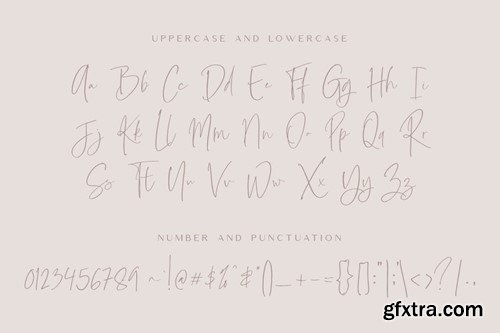 UPPERCASE AND LOWERCASE
Aa Bb Cc Dd Ee Ff Gg Hh Ii
Jj Kk Ll Mm Nn Oo Pp Qq Rr
Ss Tt Uu Vv Ww Xx Yy Zz
NUMBER AND PUNCTUATION
0123456789 ~'!@#$%^&*()_ +-={}[]:"|;'\<>?/.,
gfxtra.com